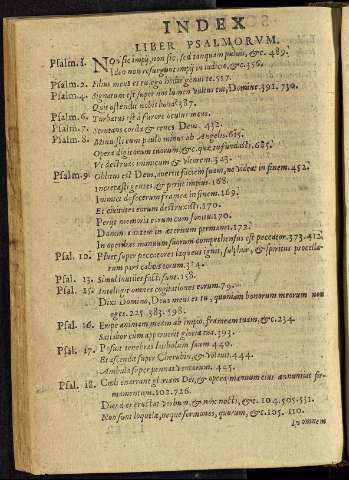 INDEX
LIBER PSALMORVM.
Psalm. 1. Non sic impij, non sic, sed tanquam puluis, &c. 489.
Ideo non resurgunt impij in iudicio, &c. 356.
Psalm. 2. Filius meus es tu, ego hodie genui te. 517.
Psalm. 4. Signatum est super nos lumen vultus tui, Domine. 391. 730.
Quis ostendit nobis bona? 387.
Psalm. 6. Turbatus est a furore oculus meus.
Psalm. 7. Scrutans corda & renes Deus. 432.
Psalm. 8. Minuisti eum paulo minus ab Angelis. 615.
Opera digitorum tuorum, &c. quæ tu fundasti. 685.
Vt destruas inimicum & vltorem. 343.
Psalm. 9. Oblitus est Deus, auertit faciem suam, ne videat in finem. 452.
Increpasti gentes & perijt impius. 168.
Inimici defecerunt frameæ in finem. 169.
Et ciuitates eorum destruxisti. 170.
Perijt memoria eorum cum sonitu. 170.
Dominus autem in æternum permanet. 172.
In operibus manuum suarum comprehensus est peccator. 373. 412.
Psal. 10. Pluet super peccatores laqueos ignis, sulphur, & spiritus procella-
rum pars calicis eorum. 324.
Psal. 13. Simul inutiles facti sunt. 158.
Psal. 15. Intelligit omnes cogitationes eorum. 79.
Dixi Domino, Deus meus es tu, quoniam bonorum meorum non
eges. 225. 383. 598.
Psal. 16. Eripe animam meam ab impio, frameam tuam, &c. 234.
Satiabor cum apparuerit gloria tua. 393.
Psal. 17. Posuit tenebras latibulum suum. 440.
Et ascendit super Cherubim, & volauit. 444.
Ambulat super pennas ventorum. 445.
Psal. 18. Cæli enarrant gloriam Dei, & opera manuum eius annuntiat fir-
mamentum. 102. 726.
Dies diei eructat verbum, & nox nocti, &c. 104. 505. 532.
Non sunt loquelæ, neque sermones, quorum, &c. 105. 110.
In omnem